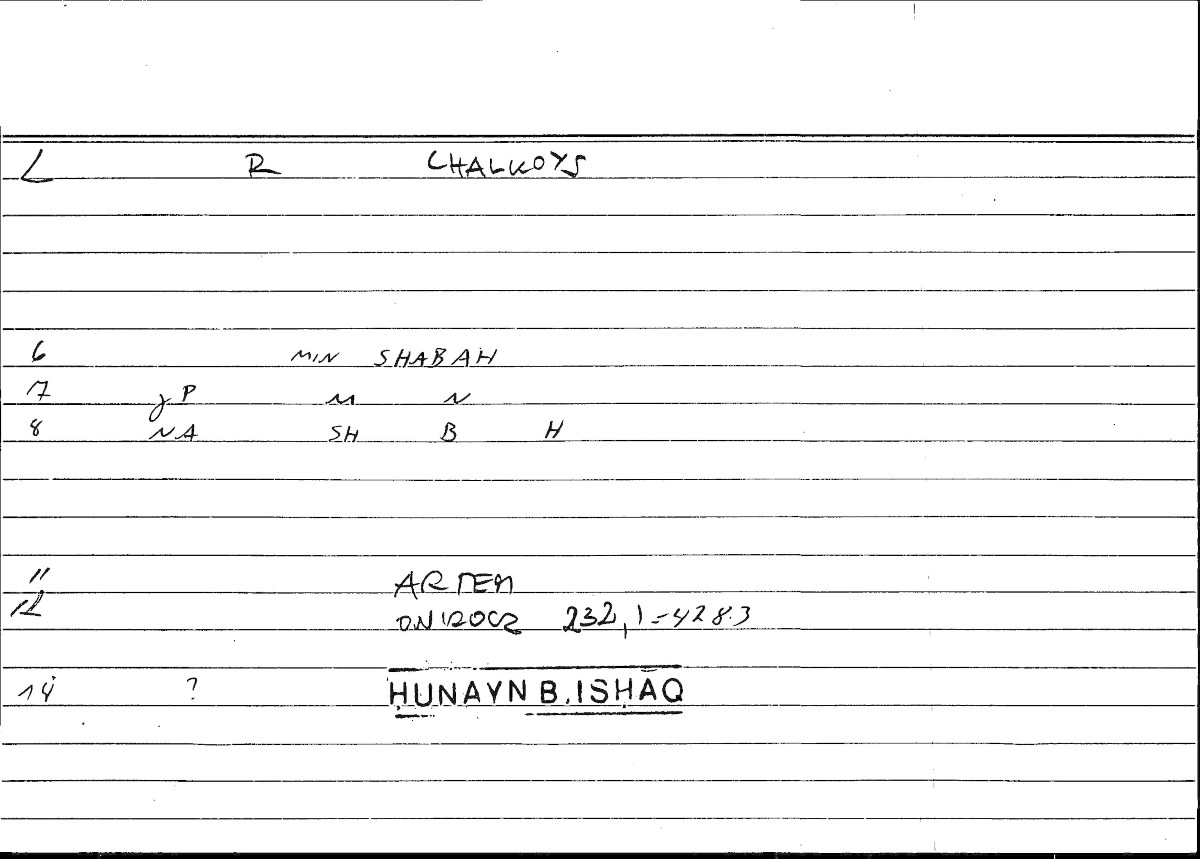 L R CHALKOYS
6 MIN SHABAH
7 P M N
8 NA SH B H
11 ARTEM
12 ONIROCR 232,1=428.3
14 ? ḤUNAYN B. ISḤĀQ